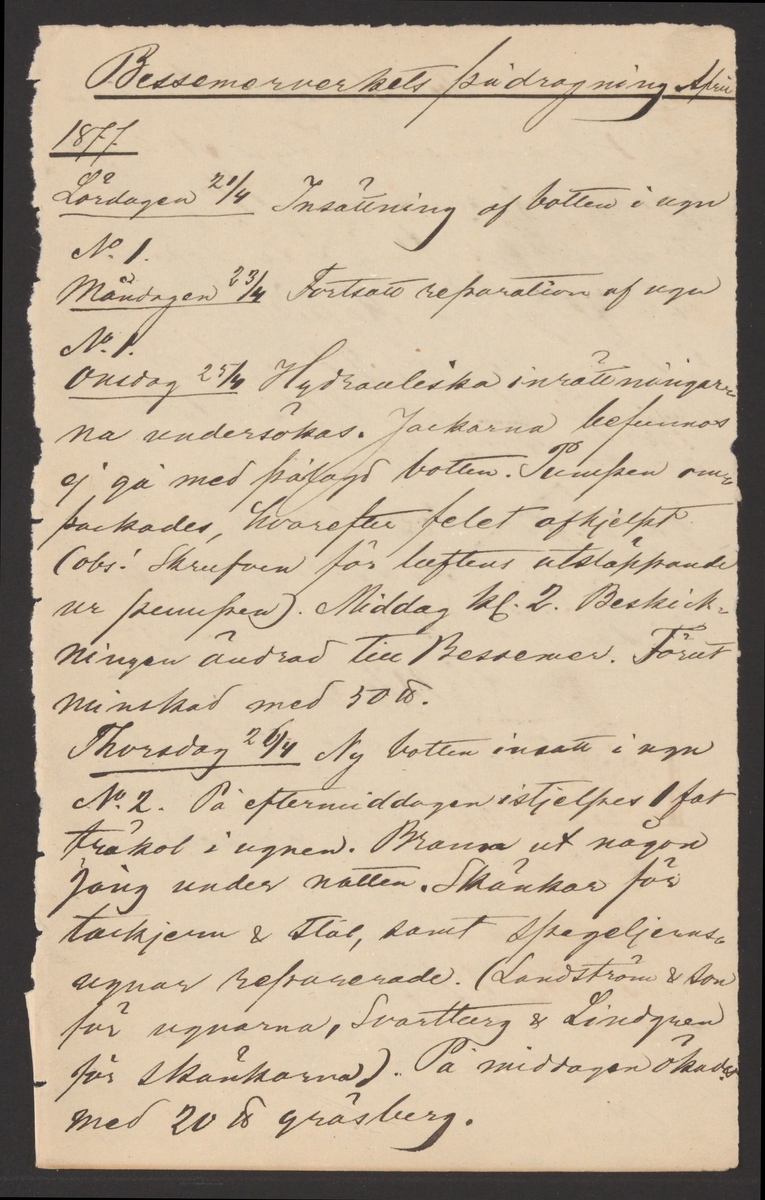 Bessemerverkets pådragning April
1877.
Lördagen 21/4 Insättning af botten i ugn
No. 1.
Måndagen 23/4 Fortsatt reparation af ugn
No. 1.
Onsdag 25/4 Hydrauliska inrättningar-
na undersökas. Jackarna befunnos
ej gå med pålagd botten. Pumpen om-
packades, hvarefter felet afhjelpt
(obs! Skrufven för luftens utsläppande
ur pumpen). Middag kl. 2. Beskick-
ningen ändrad till Bessemer. Förut
minskad med 50 ℔.
Thorsdag 26/4 Ny botten insatt i ugn
No. 2. På eftermiddagen istjelpes 1 fat
träkol i ugnen. Brann ut någon
gång under natten. Skänkar för
tackjern & stål, samt spegeljerns-
ugnar reparerade. (Landström & son
för ugnarna, Svartberg & Lindgren
för skänkarna). På middagen ökades
med 20 ℔ gräsberg.